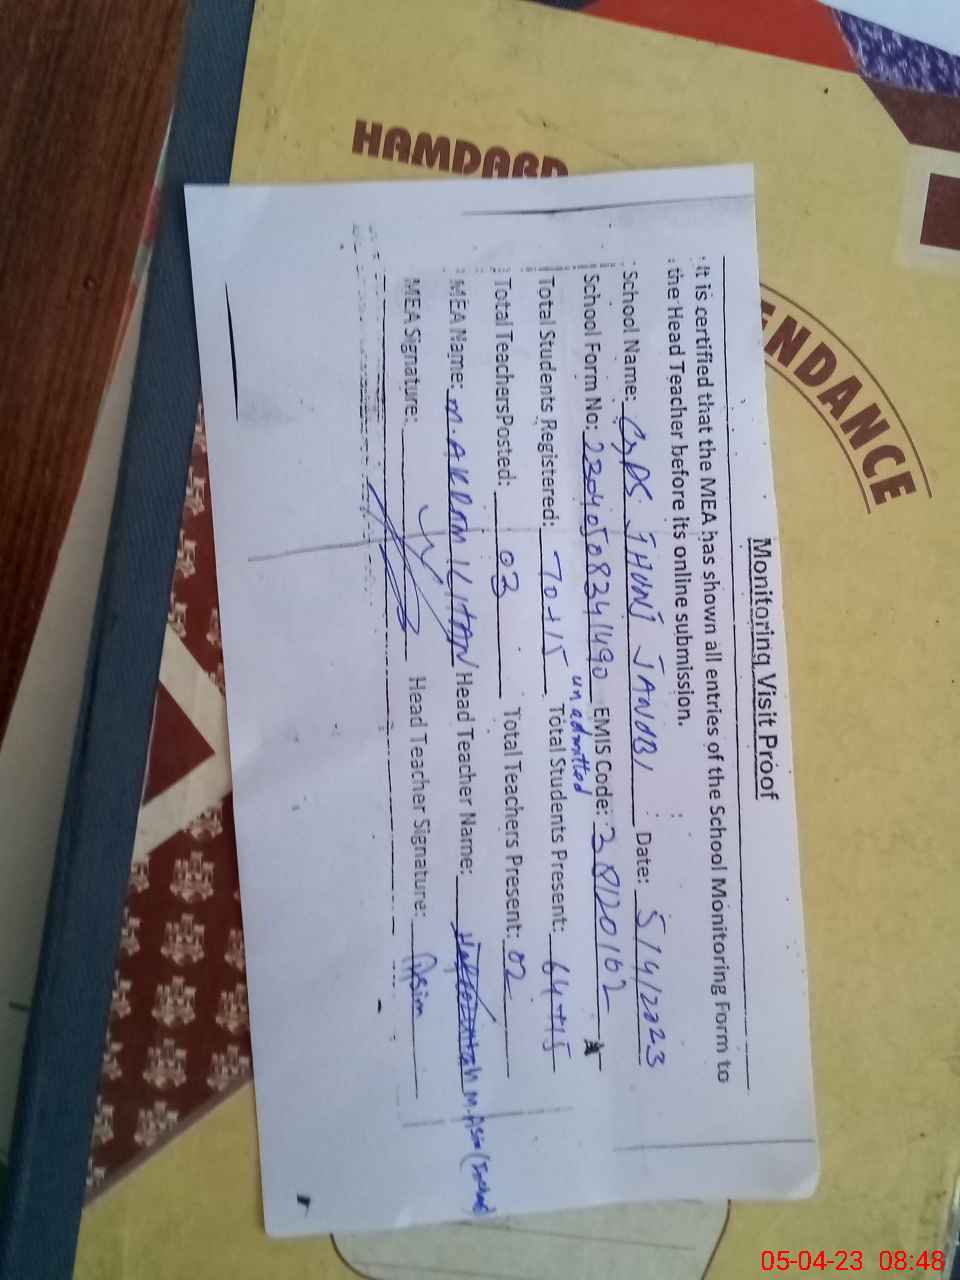 HAMDARD
ENDANCE
Monitoring Visit Proof
It is certified that the MEA has shown all entries of the School Monitoring Form to
the Head Teacher before its online submission.
School Name: GPS JHUNJ JANUBI Date: 5/4/2023
School Form No: 23040508341490 EMIS Code: 38120162
unadmitted
Total Students Registered: 70+15 Total Students Present: 64+15
Total Teachers Posted: 03 Total Teachers Present: 02
MEA Name: M. AKRAM KHAN Head Teacher Name: M. Asim
MEA Signature: Head Teacher Signature: Asim
05-04-23 08:48